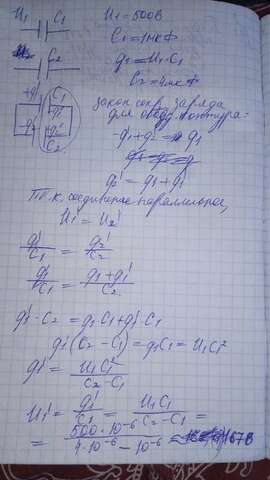 U₁ C₁ U₁ = 500В
C₁ = 1мкФ
q₁ = U₁·C₁
C₂ C₂ = 4мкФ
+q₁' C₁
закон сохр. заряда
+q₂'
для обозд. контура:
-q₁' C₂
-q₁' + q₂' = q₁
q₂' = q₁ + q₁'
Т.к. соединение параллельное,
U₁' = U₂'
q₁'/C₁ = q₂'/C₂
q₁'/C₁ = (q₁ + q₁')/C₂
q₁'·C₂ = q₁C₁ + q₁'·C₁
q₁'(C₂ - C₁) = q₁C₁ = U₁C₁²
q₁' = U₁C₁²/(C₂ - C₁)
U₁' = q₁'/C₁ = U₁C₁/(C₂ - C₁) =
= 500·10⁻⁶/(4·10⁻⁶ - 10⁻⁶) ≈ 167В